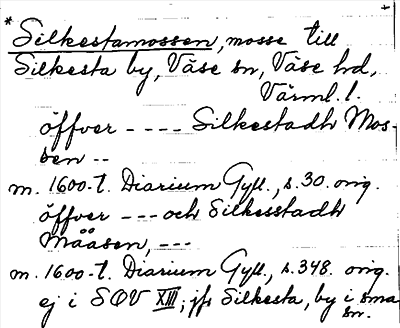 +
* Silkestamossen, mosse till
Silkesta by, Väse sn, Väse hd,
Värml. l.
öffver - - - - Silkestadh Mos-
sen - -
m. 1600-t. Diarium Gyll., s. 30. orig.
öffver - - - och Silkesstadh
Määsen, - - -
m. 1600-t. Diarium Gyll., s. 348. orig.
ej i SOV XIII; jfr Silkesta, by i sma
sn.